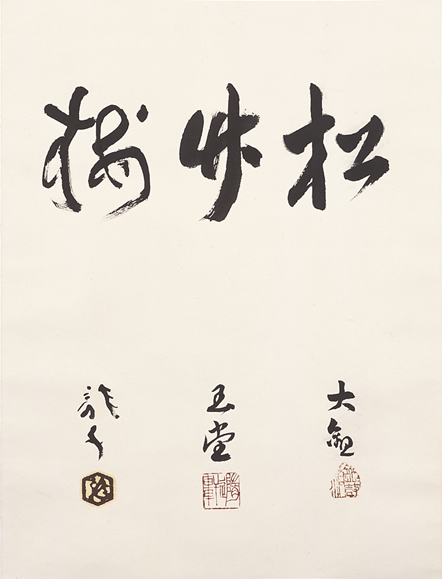 松竹梅
大観
玉堂
龍子